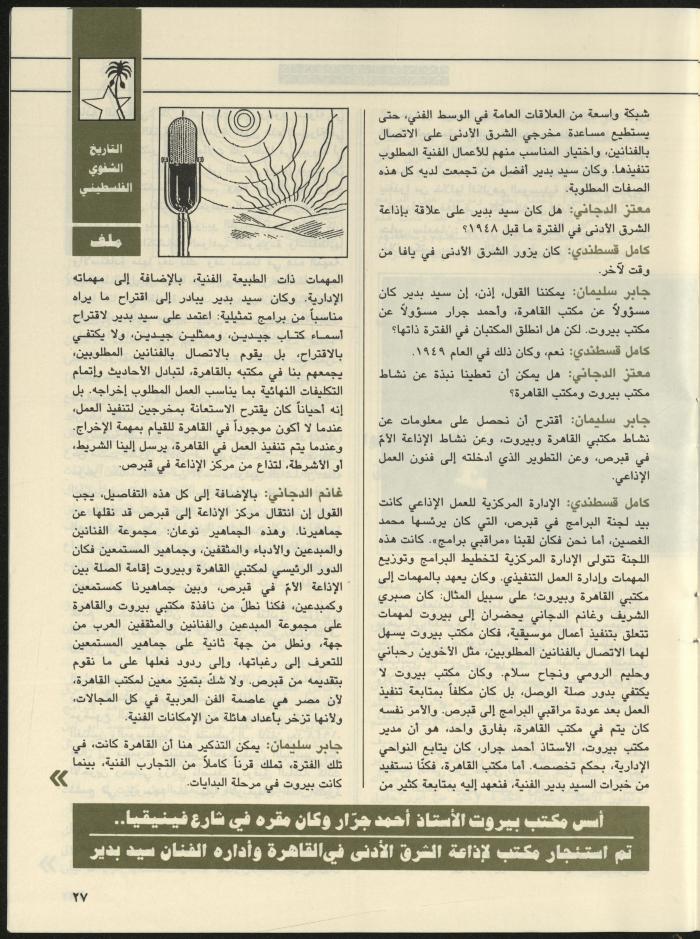 التاريخ
الشفوي
الفلسطيني
ملف
شبكة واسعة من العلاقات العامة في الوسط الفني، حتى
يستطيع مساعدة مخرجي الشرق الأدنى على الاتصال
بالفنانين، واختيار المناسب منهم للأعمال الفنية المطلوب
تنفيذها. وكان سيد بدير أفضل من تجمعت لديه كل هذه
الصفات المطلوبة.
معتز الدجاني: هل كان سيد بدير على علاقة بإذاعة
الشرق الأدنى في الفترة ما قبل ١٩٤٨؟
كامل قسطندي: كان يزور الشرق الأدنى في يافا من
وقت لآخر.
جابر سليمان: يمكننا القول، إذن، إن سيد بدير كان
مسؤولاً عن مكتب القاهرة، وأحمد جرار مسؤولاً عن
مكتب بيروت. لكن هل انطلق المكتبان في الفترة ذاتها؟
كامل قسطندي: نعم، وكان ذلك في العام ١٩٤٩.
معتز الدجاني: هل يمكن أن تعطينا نبذة عن نشاط
مكتب بيروت ومكتب القاهرة؟
جابر سليمان: أقترح أن نحصل على معلومات عن
نشاط مكتبي القاهرة وبيروت، وعن نشاط الإذاعة الأمّ
في قبرص، وعن التطوير الذي أدخلته إلى فنون العمل
الإذاعي.
كامل قسطندي: الإدارة المركزية للعمل الإذاعي كانت
بيد لجنة البرامج في قبرص، التي كان يرئسها محمد
الغصين، أما نحن فكان لقبنا «مراقبي برامج». كانت هذه
اللجنة تتولى الإدارة المركزية لتخطيط البرامج وتوزيع
المهمات وإدارة العمل التنفيذي. وكان يعهد بالمهمات إلى
مكتبي القاهرة وبيروت؛ على سبيل المثال: كان صبري
الشريف وغانم الدجاني يحضران إلى بيروت لمهمات
تتعلق بتنفيذ أعمال موسيقية، فكان مكتب بيروت يسهل
لهما الاتصال بالفنانين المطلوبين، مثل الأخوين رحباني
وحليم الرومي ونجاح سلام. وكان مكتب بيروت لا
يكتفي بدور صلة الوصل، بل كان مكلفاً بمتابعة تنفيذ
العمل بعد عودة مراقبي البرامج إلى قبرص. والأمر نفسه
كان يتم في مكتب القاهرة، بفارق واحد، هو أن مدير
مكتب بيروت، الأستاذ أحمد جرار، كان يتابع النواحي
الإدارية، بحكم تخصصه. أما مكتب القاهرة، فكنّا نستفيد
من خبرات السيد بدير الفنية، فنعهد إليه بمتابعة كثير من
المهمات ذات الطبيعة الفنية، بالإضافة إلى مهماته
الإدارية. وكان سيد بدير يبادر إلى اقتراح ما يراه
مناسباً من برامج تمثيلية: اعتمد على سيد بدير لاقتراح
أسماء كتاب جيدين، وممثلين جيدين، ولا يكتفي
بالاقتراح، بل يقوم بالاتصال بالفنانين المطلوبين،
يجمعهم بنا في مكتبه بالقاهرة، لتبادل الأحاديث وإتمام
التكليفات النهائية بما يناسب العمل المطلوب إخراجه. بل
إنه أحياناً كان يقترح الاستعانة بمخرجين لتنفيذ العمل،
عندما لا أكون موجوداً في القاهرة للقيام بمهمة الإخراج.
وعندما يتم تنفيذ العمل في القاهرة، يرسل إلينا الشريط،
أو الأشرطة، لتذاع من مركز الإذاعة في قبرص.
غانم الدجاني: بالإضافة إلى كل هذه التفاصيل، يجب
القول إن انتقال مركز الإذاعة إلى قبرص قد نقلها عن
جماهيرنا. وهذه الجماهير نوعان: مجموعة الفنانين
والمبدعين والأدباء والمثقفين، وجماهير المستمعين فكان
الدور الرئيسي لمكتبي القاهرة وبيروت إقامة الصلة بين
الإذاعة الأمّ في قبرص، وبين جماهيرنا كمستمعين
وكمبدعين، فكنا نطلّ من نافذة مكتبي بيروت والقاهرة
على مجموعة المبدعين والفنانين والمثقفين العرب من
جهة، ونطل من جهة ثانية على جماهير المستمعين
للتعرف إلى رغباتها، وإلى ردود فعلها على ما نقوم
بتقديمه من قبرص. ولا شكّ بتميّز معين لمكتب القاهرة،
لأن مصر هي عاصمة الفن العربية في كل المجالات،
ولأنها تزخر بأعداد هائلة من الإمكانات الفنية.
جابر سليمان: يمكن التذكير هنا أن القاهرة كانت، في
تلك الفترة، تملك قرناً كاملاً من التجارب الفنية، بينما
كانت بيروت في مرحلة البدايات.
«
أسس مكتب بيروت الأستاذ أحمد جرّار وكان مقره في شارع فينيقيا..
تم استئجار مكتب لإذاعة الشرق الأدنى في القاهرة وأداره الفنان سيد بدير
٢٧